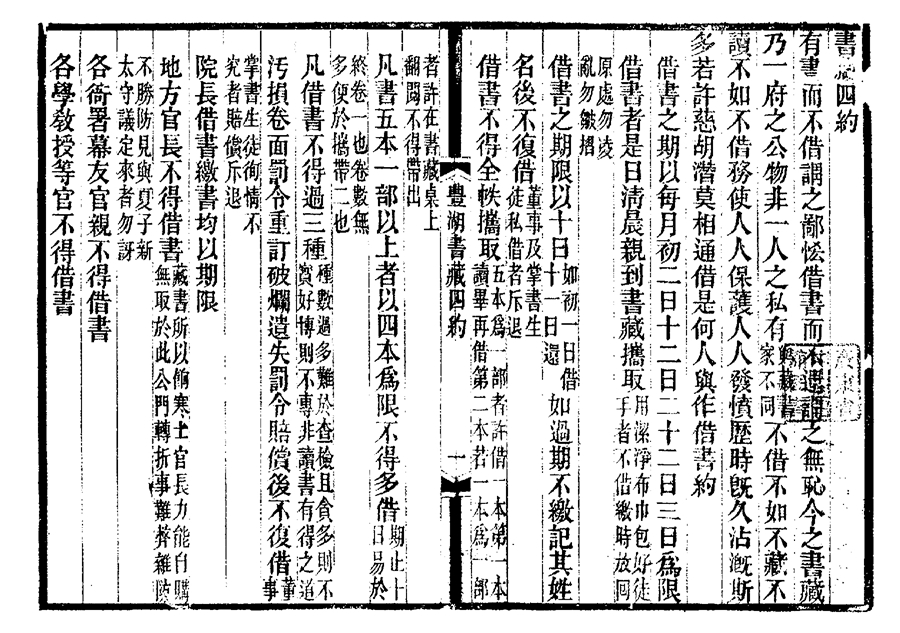 書藏四約
有書而不借謂之鄙悋借書而不還謂之無恥今之書藏
乃一府之公物非一人之私有與藏書家不同不借不如不藏不
讀不如不借務使人人保護人人發憤歷時旣久沾漑斯
多若許慈胡潛莫相通借是何人與作借書約
借書之期以每月初二日十二日二十二日三日爲限
借書者是日淸晨親到書藏攜取用潔淨布巾包好徒手者不借繳時放回
原處勿凌亂勿皺摺
借書之期限以十日如初一日借十一日還如過期不繳記其姓
名後不復借董事及掌書生徒私借者斥退
借書不得全帙攜取五本爲一部者許借一本第一本讀畢再借第二本若一本爲一部
豐湖書藏四約
一
者許在書藏桌上翻閱不得帶出
凡書五本一部以上者以四本爲限不得多借期止十日易於
終卷一也卷數無多便於攜帶二也
凡借書不得過三種種數過多難於查檢且貪多則不賅好博則不專非讀書有得之道
汚損卷面罰令重訂破爛遺失罰令賠償後不復借董事
掌書生徒徇情不究者賠償斥退
院長借書繳書均以期限
地方官長不得借書藏書所以餉寒士官長力能自購無取於此公門轉折事難擠雜陵
不勝防見與夏子新太守議定來者勿訝
各衙署幕友官親不得借書
各學敎授等官不得借書